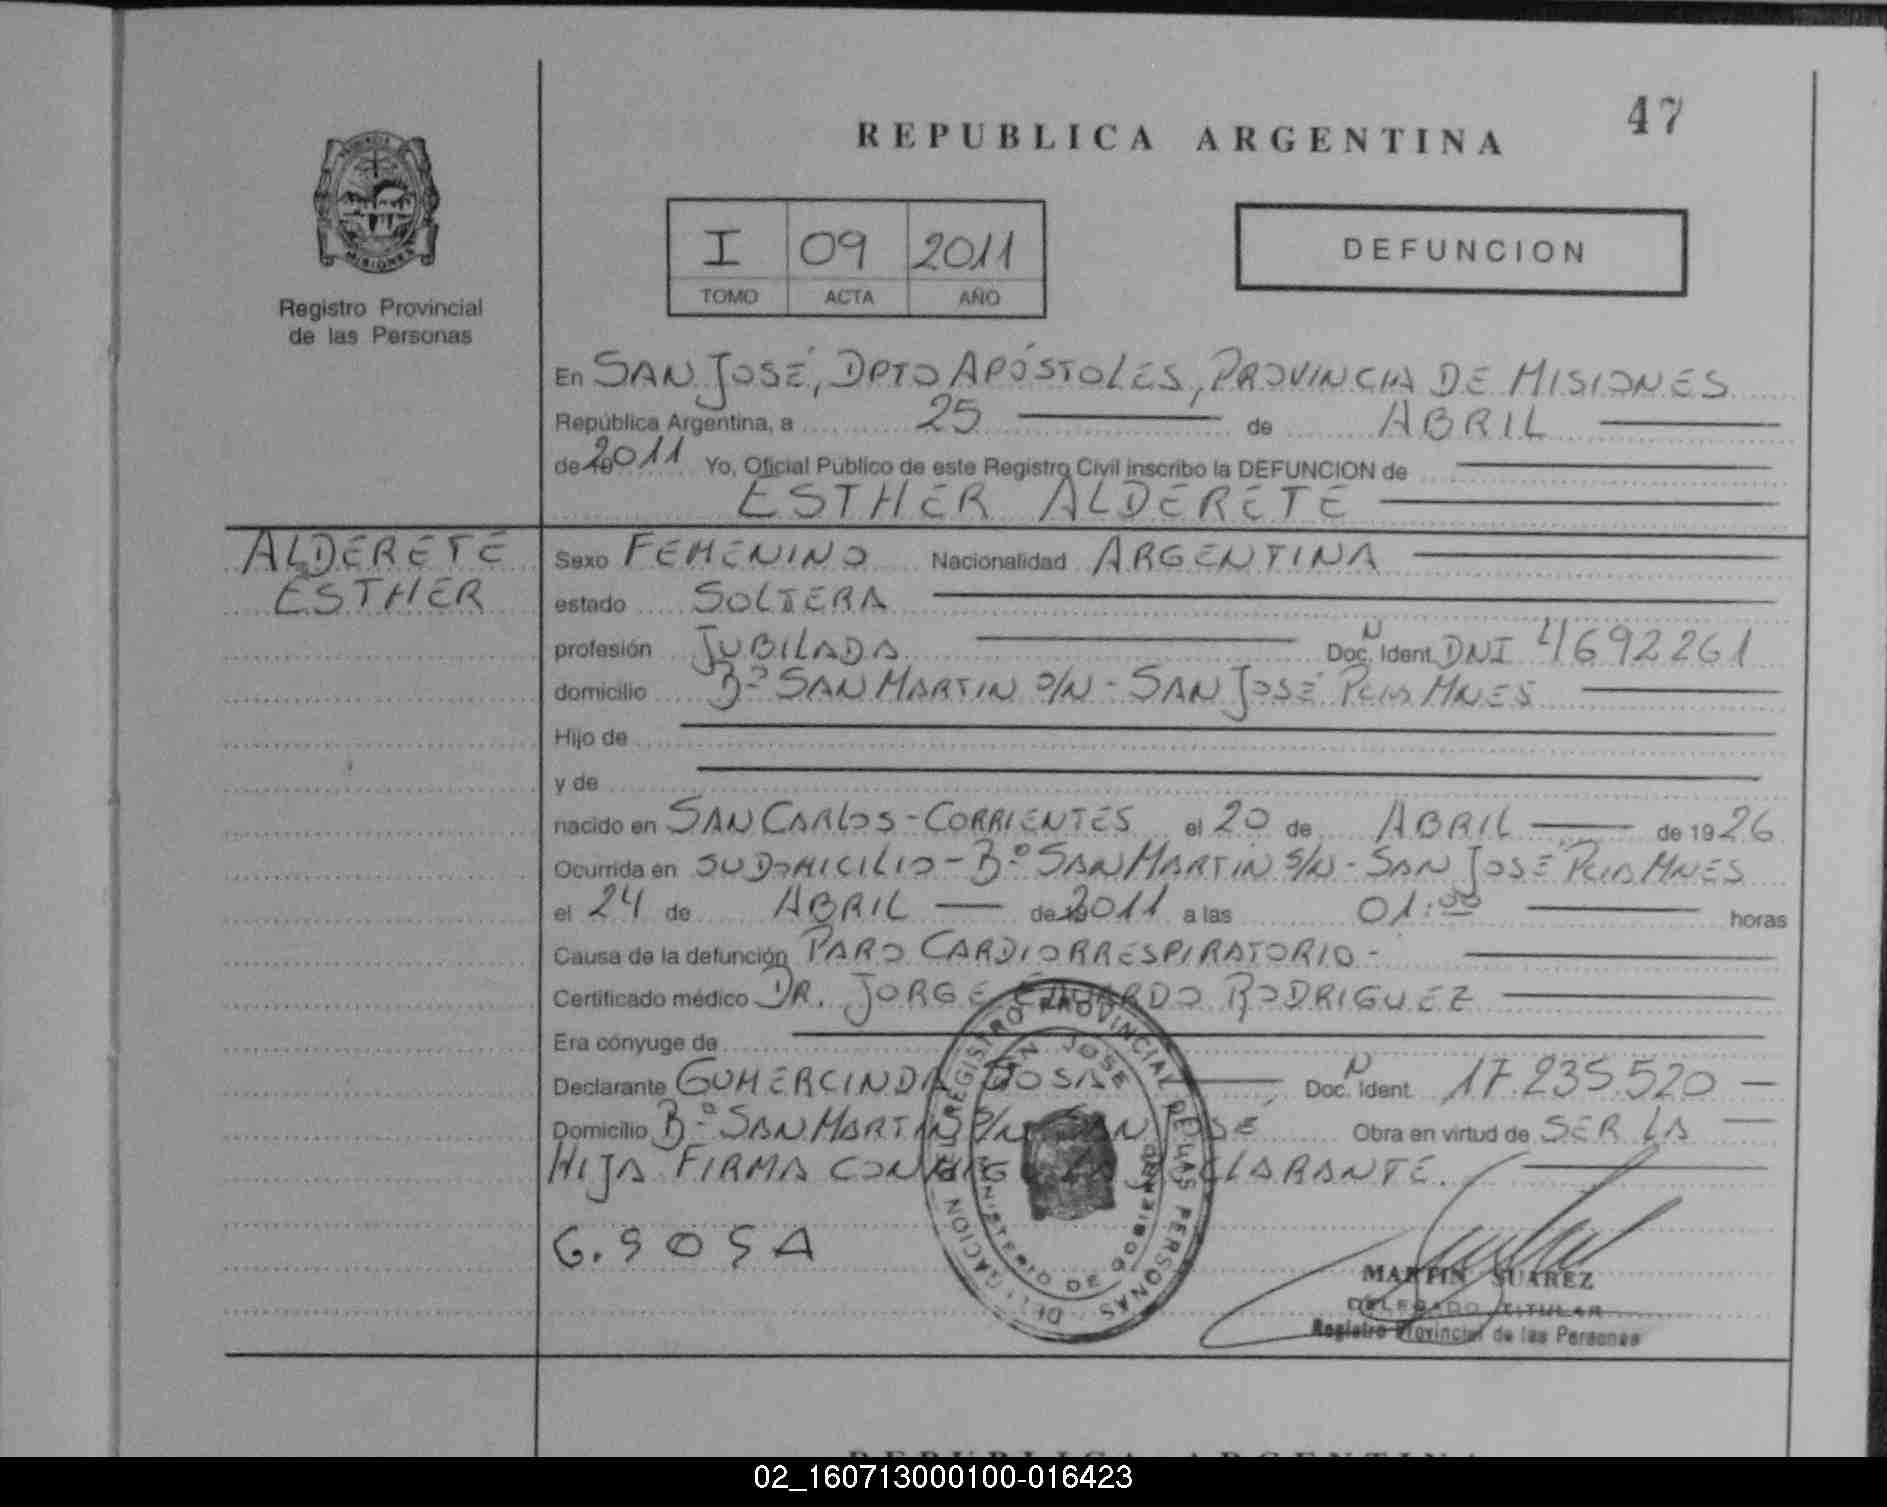 47
REPUBLICA ARGENTINA
PROVINCIA
MISIONES
Registro Provincial
de las Personas
I 09 2011
TOMO ACTA AÑO
DEFUNCION
En SAN JOSÉ, DPTO APÓSTOLES, PROVINCIA DE MISIONES
República Argentina, a 25 de ABRIL
de 2011 Yo, Oficial Público de este Registro Civil inscribo la DEFUNCION de
ESTHER ALDERETE
ALDERETE
ESTHER
Sexo FEMENINO Nacionalidad ARGENTINA
estado SOLTERA
profesión JUBILADA Doc. N Ident. DNI 4692261
domicilio Bº SAN MARTIN S/N - SAN JOSÉ PCIA MNES
Hijo de
y de
nacido en SAN CARLOS - CORRIENTES el 20 de ABRIL de 1926
Ocurrida en SU DOMICILIO - Bº SAN MARTIN S/N - SAN JOSÉ PCIA MNES
el 24 de ABRIL de 2011 a las 01:00 horas
Causa de la defunción PARO CARDIORRESPIRATORIO -
Certificado médico DR. JORGE EDUARDO RODRIGUEZ
Era cónyuge de
Declarante GUMERCINDA SOSA Doc. N Ident. 17.235.520
Domicilio Bº SAN MARTIN S/N SAN JOSÉ Obra en virtud de SER LA
HIJA FIRMA CONMIGO LA DECLARANTE.
G. SOSA
REGISTRO PROVINCIAL DE LAS PERSONAS
DELEGACION
SAN JOSE
MINISTERIO DE GOBIERNO
MARTIN SUAREZ
DELEGADO TITULAR
Registro Provincial de las Personas
REPUBLICA ARGENTINA
02_160713000100-016423